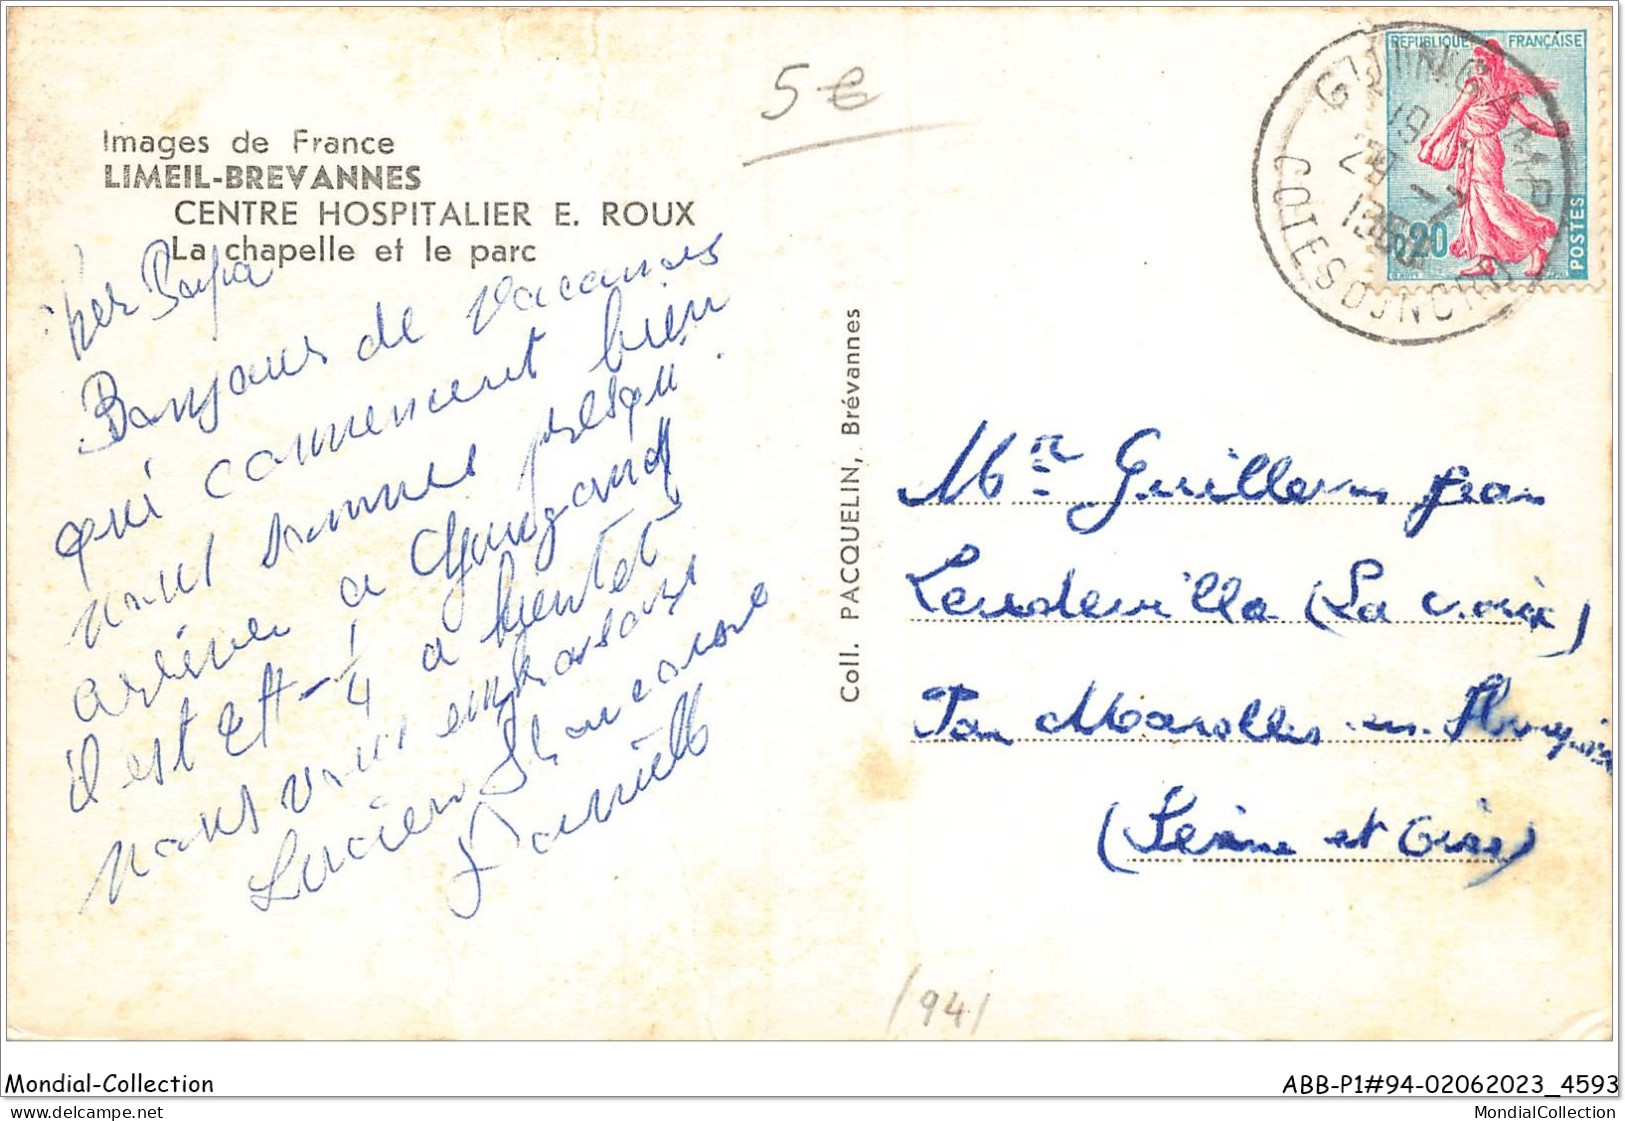 Images de France
LIMEIL-BREVANNES
CENTRE HOSPITALIER E. ROUX
La chapelle et le parc
5€
REPUBLIQUE FRANÇAISE
0,20
POSTES
GUINGAMP
COTES DU NORD
Cher Papa
Bonjour de vacances
qui commencent bien
nous sommes presqu
arrivé a
il est et 1/4 a bientot
nous vous embrasons
Lucien
Danielle
Coll. PACQUELIN, Brévannes
Mr Guillerm Jean
Leudeville (La croix)
Par Marolles en Hurepoix
(Seine et Oise)
(94)
Mondial-Collection
ABB-P1#94-02062023_4593
delcampe.net
MondialCollection